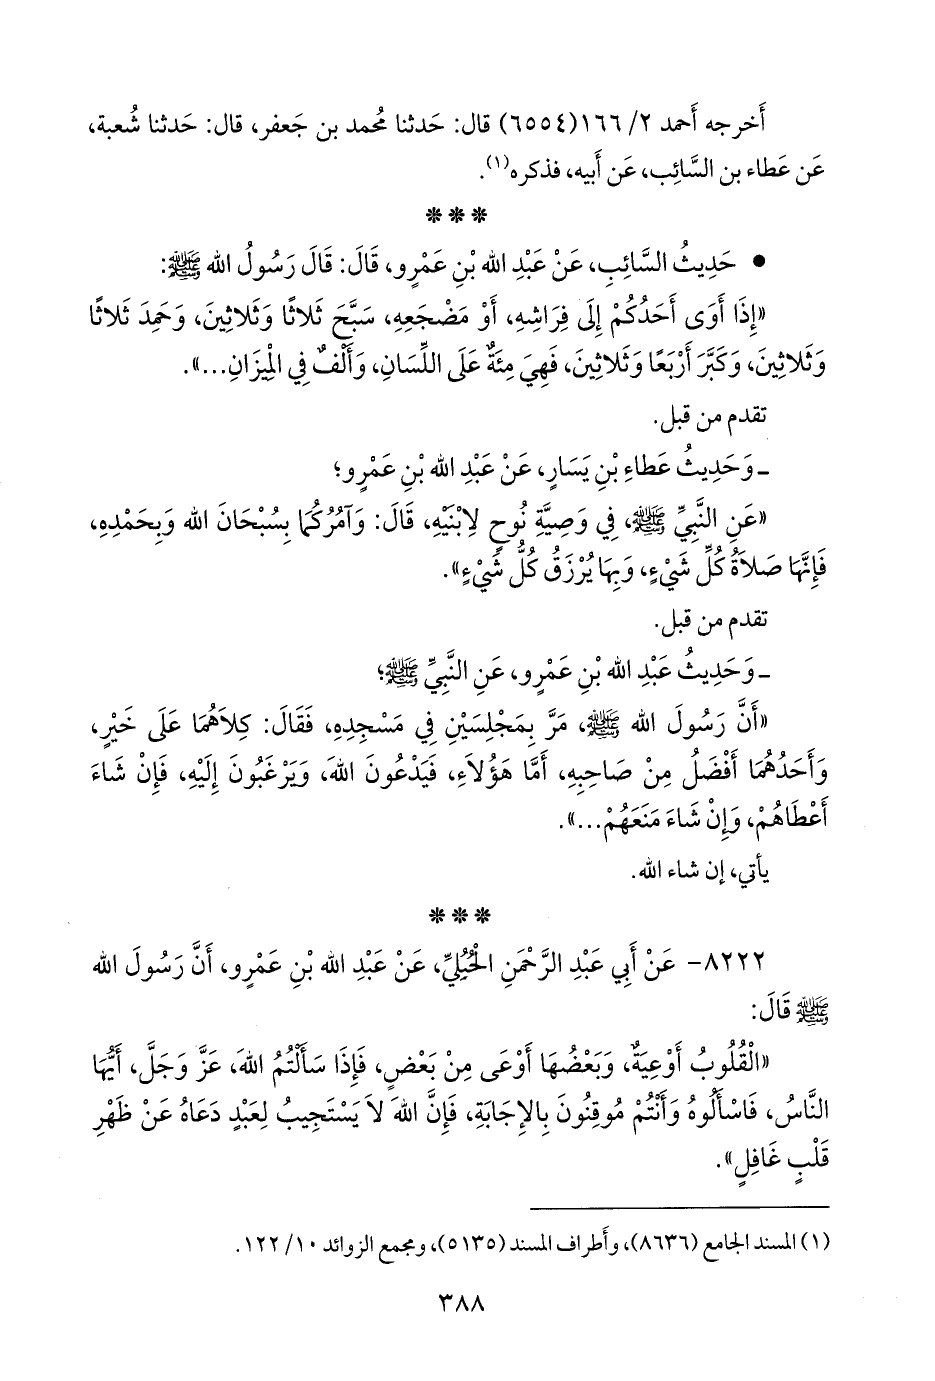 أَخرجه أَحمد ٢/ ١٦٦(٦٥٥٤) قال: حَدثنا مُحمد بن جَعفر، قال: حَدثنا شُعبة،
عَن عَطاء بن السَّائِب، عَن أَبيه، فذكره(١).
* * *
• حَدِيثُ السَّائِبِ، عَنْ عَبْدِ الله بْنِ عَمْرٍو، قَالَ: قَالَ رَسُولُ الله ﷺ:
«إِذَا أَوَى أَحَدُكُمْ إِلَى فِرَاشِهِ، أَوْ مَضْجَعِهِ، سَبَّحَ ثَلاَثًا وَثَلاَثِينَ، وَحَمِدَ ثَلاَثًا
وَثَلاَثِينَ، وَكَبَّرَ أَرْبَعًا وَثَلاَثِينَ، فَهِيَ مِئَةٌ عَلَى اللِّسَانِ، وَأَلْفٌ فِي الْمِيزَانِ...».
تقدم من قبل.
ـ وَحَدِيثُ عَطَاءِ بْنِ يَسَارٍ، عَنْ عَبْدِ الله بْنِ عَمْرٍو؛
«عَنِ النَّبِيِّ ﷺ، فِي وَصِيَّةِ نُوحٍ لاِبْنَيْهِ، قَالَ: وَآمُرُكُمَا بِسُبْحَانَ الله وَبِحَمْدِهِ،
فَإِنَّهَا صَلاَةُ كُلِّ شَيْءٍ، وَبِهَا يُرْزَقُ كُلُّ شَيْءٍ».
تقدم من قبل.
ـ وَحَدِيثُ عَبْدِ الله بْنِ عَمْرٍو، عَنِ النَّبِيِّ ﷺ؛
«أَنَّ رَسُولَ الله ﷺ، مَرَّ بِمَجْلِسَيْنِ فِي مَسْجِدِهِ، فَقَالَ: كِلاَهُمَا عَلَى خَيْرٍ،
وَأَحَدُهُمَا أَفْضَلُ مِنْ صَاحِبِهِ، أَمَّا هَؤُلاَءِ، فَيَدْعُونَ اللهَ، وَيَرْغَبُونَ إِلَيْهِ، فَإِنْ شَاءَ
أَعْطَاهُمْ، وَإِنْ شَاءَ مَنَعَهُمْ...».
يأتي، إن شاء الله.
* * *
٨٢٢٢- عَنْ أَبِي عَبْدِ الرَّحْمَنِ الْحُبُلِيِّ، عَنْ عَبْدِ الله بْنِ عَمْرٍو، أَنَّ رَسُولَ الله
ﷺ قَالَ:
«الْقُلُوبُ أَوْعِيَةٌ، وَبَعْضُهَا أَوْعَى مِنْ بَعْضٍ، فَإِذَا سَأَلْتُمُ اللهَ، عَزَّ وَجَلَّ، أَيُّهَا
النَّاسُ، فَاسْأَلُوهُ وَأَنْتُمْ مُوقِنُونَ بِالإِجَابَةِ، فَإِنَّ اللهَ لاَ يَسْتَجِيبُ لِعَبْدٍ دَعَاهُ عَنْ ظَهْرِ
قَلْبٍ غَافِلٍ».
(١) المسند الجامع (٨٦٣٦)، وأَطراف المسند (٥١٣٥)، ومجمع الزوائد ١٠/ ١٢٢.
٣٨٨